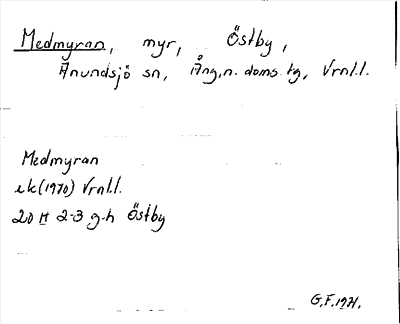 Medmyran, myr, Östby,
Anundsjö sn, Ång.n. doms.tg, Vrnl.l.
Medmyran
ek(1970) Vrnl.l.
20 H 2-3 g-h Östby
G.F. 1971.